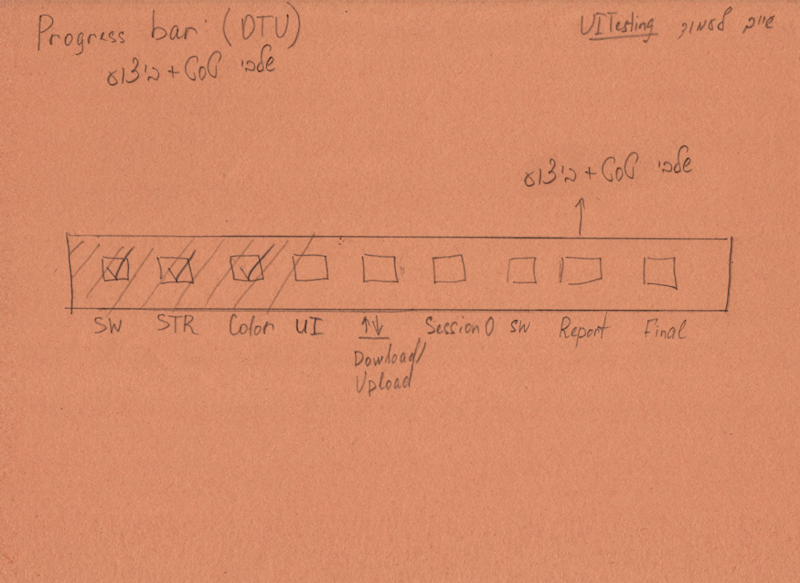 Progress bar (DTU)
שלבי טסט + ביצוע
UITesting
שלבי טסט + ביצוע
SW STR Color UI ↑↓ Session 0 SW Report Final
Dowload/
Upload